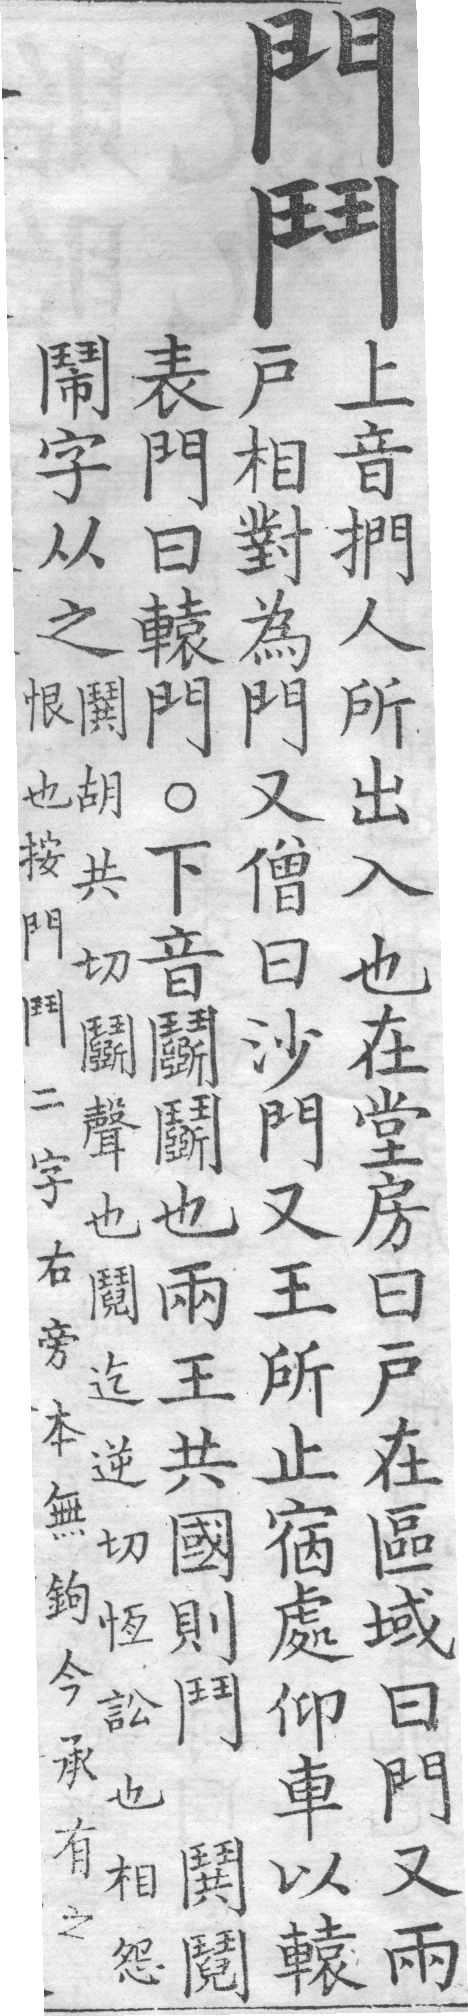 門鬥
上音捫人所出入也在堂房曰戶在區域曰門又兩
戶相對為門又僧曰沙門又王所止宿處仰車以轅
表門曰轅門○下音鬭鬭也兩王共國則鬥 鬨鬩
鬧字从之
鬨胡共切鬭聲也鬩迄逆切恆訟也相怨
恨也按門鬥二字右旁本無鉤今承有之